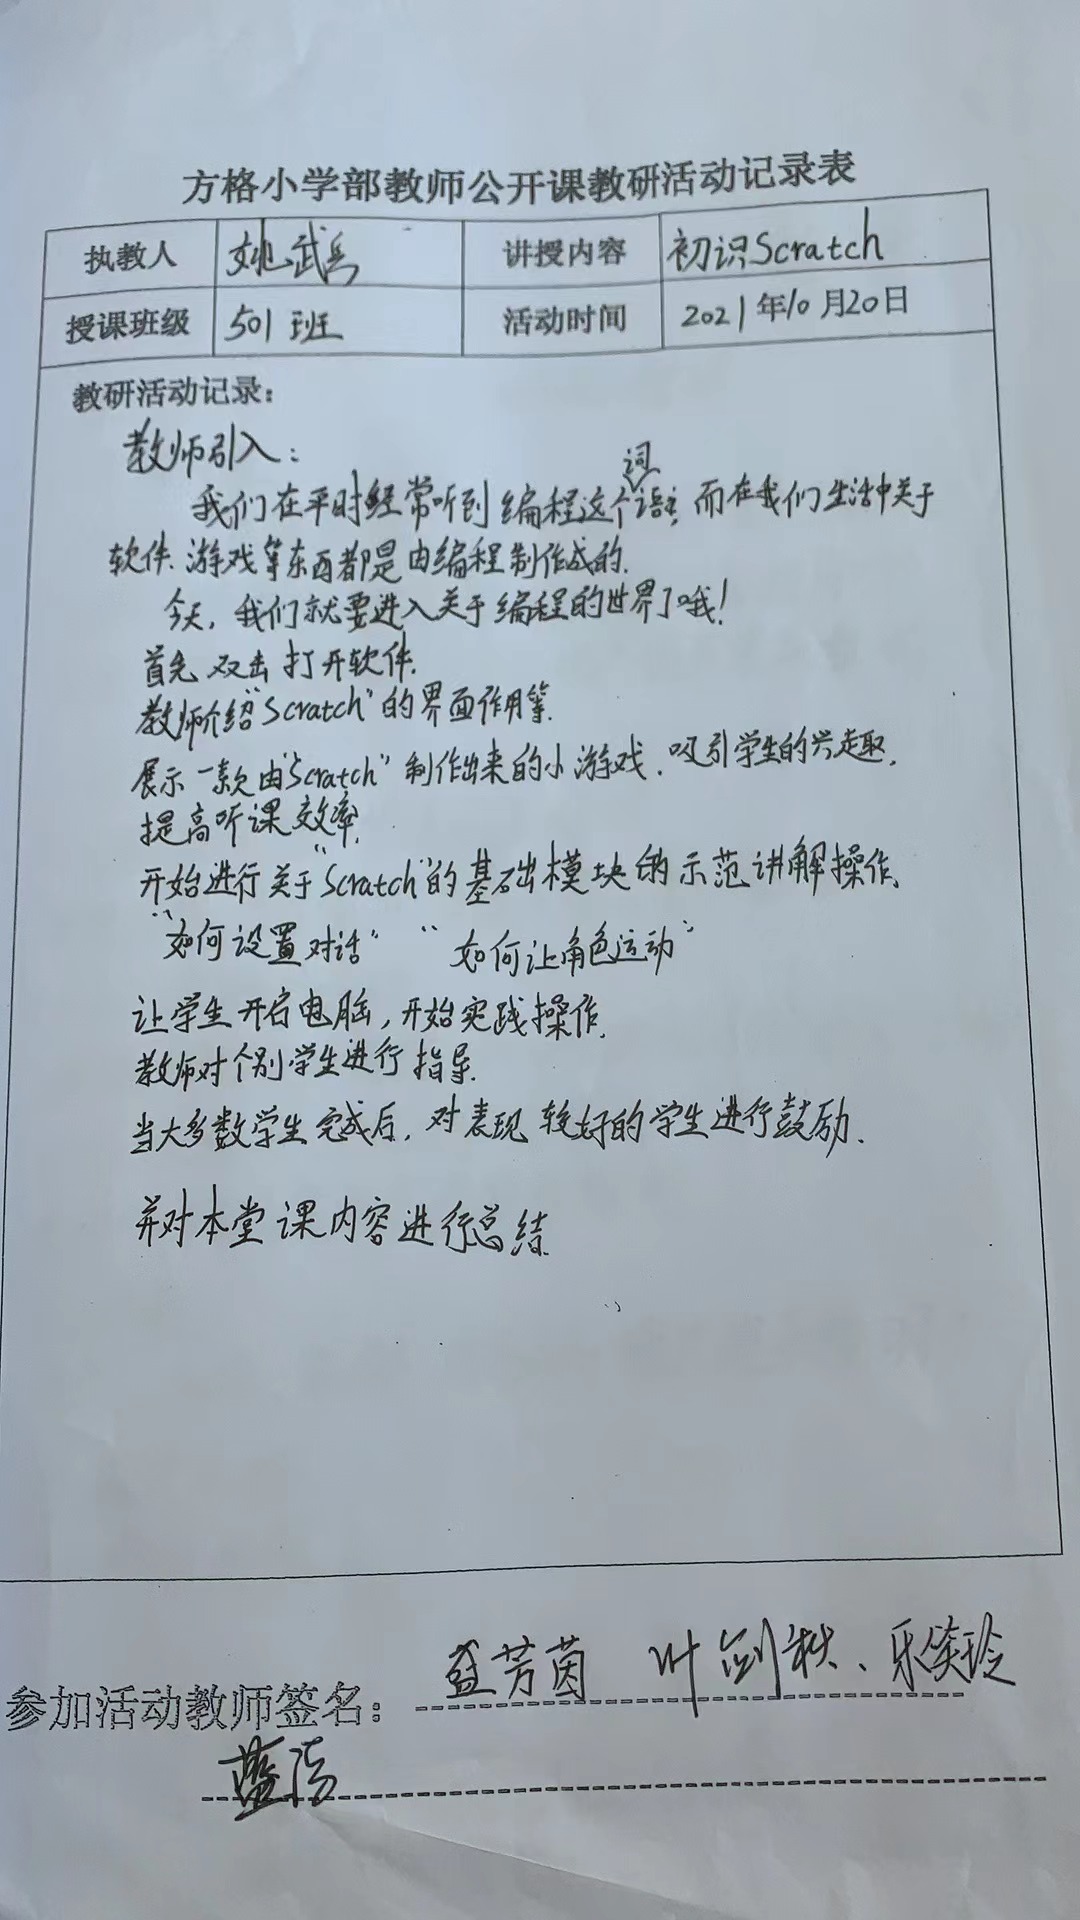 方格小学部教师公开课教研活动记录表
执教人 姚武兵 讲授内容 初识Scratch
授课班级 501班 活动时间 2021年10月20日
教研活动记录：
教师引入：
我们在平时经常听到编程这个词语，而在我们生活中关于
软件、游戏等东西都是由编程制作成的.
今天，我们就要进入关于编程的世界了哦！
首先双击打开软件.
教师介绍“Scratch”的界面作用等.
展示一款由“Scratch”制作出来的小游戏，吸引学生的兴趣，
提高听课效率.
开始进行关于“Scratch”的基础模块的示范讲解操作，
“如何设置对话” “如何让角色运动”
让学生开启电脑，开始实践操作.
教师对个别学生进行指导.
当大多数学生完成后，对表现较好的学生进行鼓励.
并对本堂课内容进行总结.
参加活动教师签名： 芳茵 叶剑秋、乐笑玲
蓝